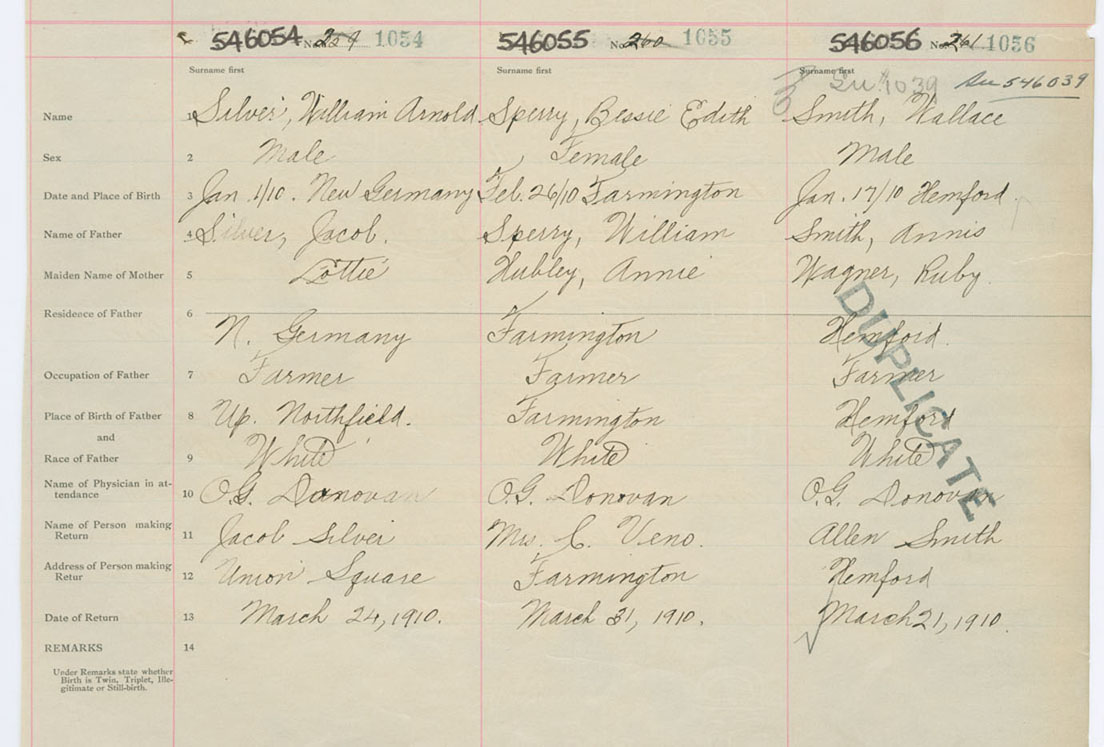 546054 No. 259 1054 546055 No. 260 1055 546056 No. 261 1056
Surname first Surname first Surname first Su 1039 Su 546039
Name 1 Silver, William Arnold Sperry, Bessie Edith Smith, Wallace
Sex 2 Male Female Male
Date and Place of Birth 3 Jan. 1/10. New Germany Feb. 26/10 Farmington Jan. 17/10 Hemford.
Name of Father 4 Silver, Jacob. Sperry, William Smith, Annis
Maiden Name of Mother 5 Lottie Hubley, Annie Wagner, Ruby.
Residence of Father 6
N. Germany Farmington Hemford.
Occupation of Father 7 Farmer Farmer Farmer
Place of Birth of Father 8 Up. Northfield. Farmington Hemford
and
Race of Father 9 White White White
Name of Physician in at-
tendance 10 O.G. Donovan O.G. Donovan O.G. Donovan
DUPLICATE
Name of Person making
Return 11 Jacob Silver Mrs. C. Veno. Allen Smith
Address of Person making
Retur 12 Union Square Farmington Hemford
Date of Return 13 March 24, 1910. March 31, 1910. March 21, 1910.
REMARKS 14
Under Remarks state whether
Birth is Twin, Triplet, Ille-
gitimate or Still-birth.